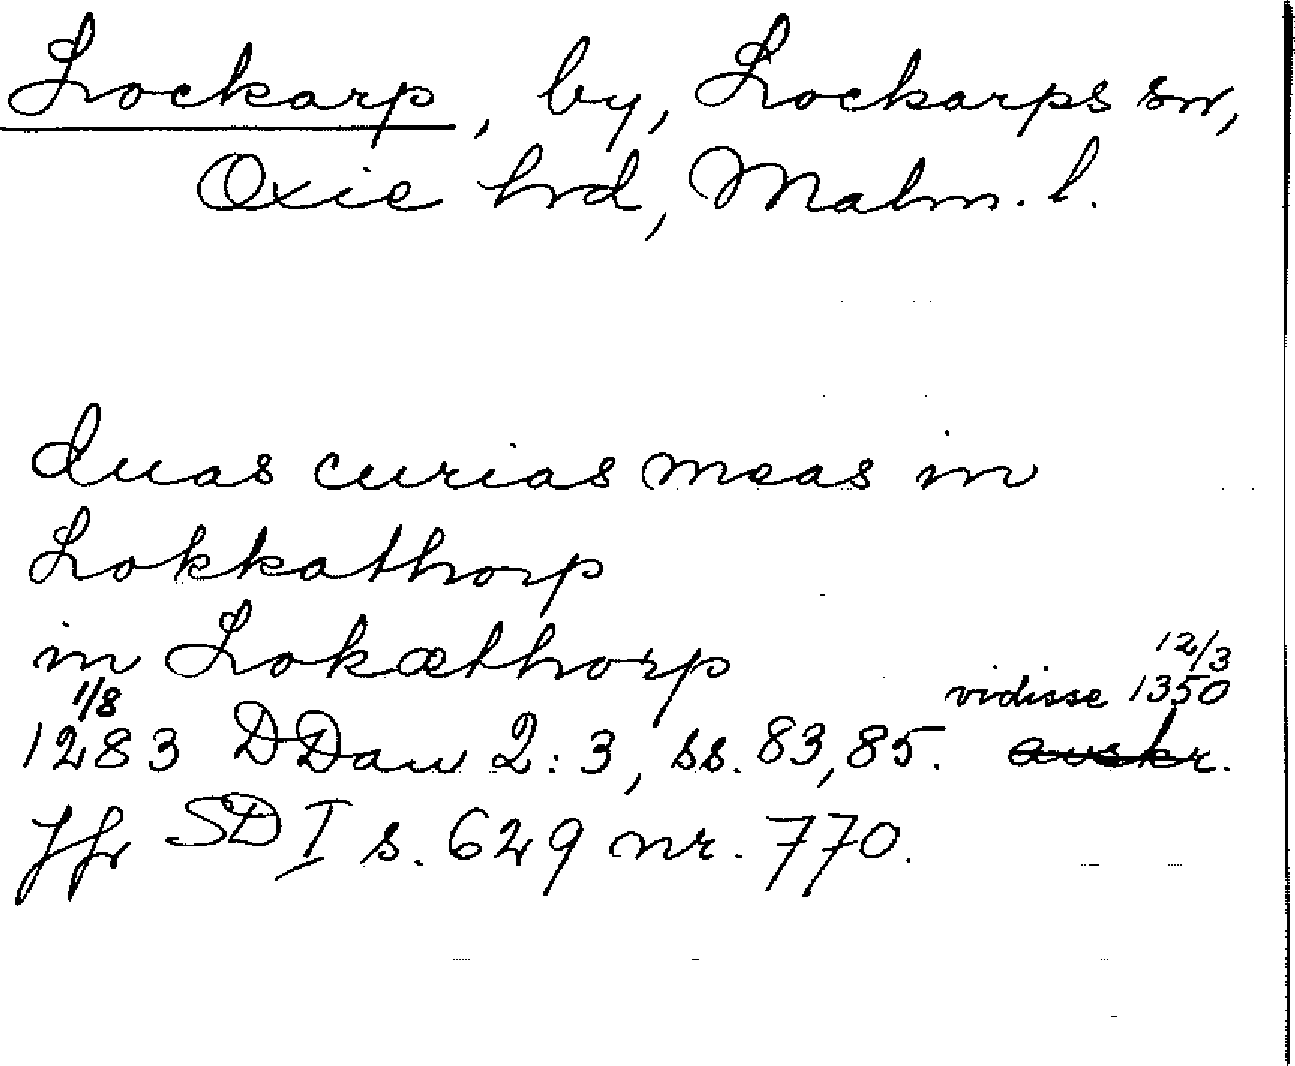 Lockarp, by, Lockarps sn,
Oxie hrd, Malm. l.
duas curias meas in
Lokkathorp
in Lokæthorp
1/8
12/3
vidisse 1350
1283 DDan 2:3, ss. 83, 85. avskr.
Jfr SD I s. 629 nr. 770.